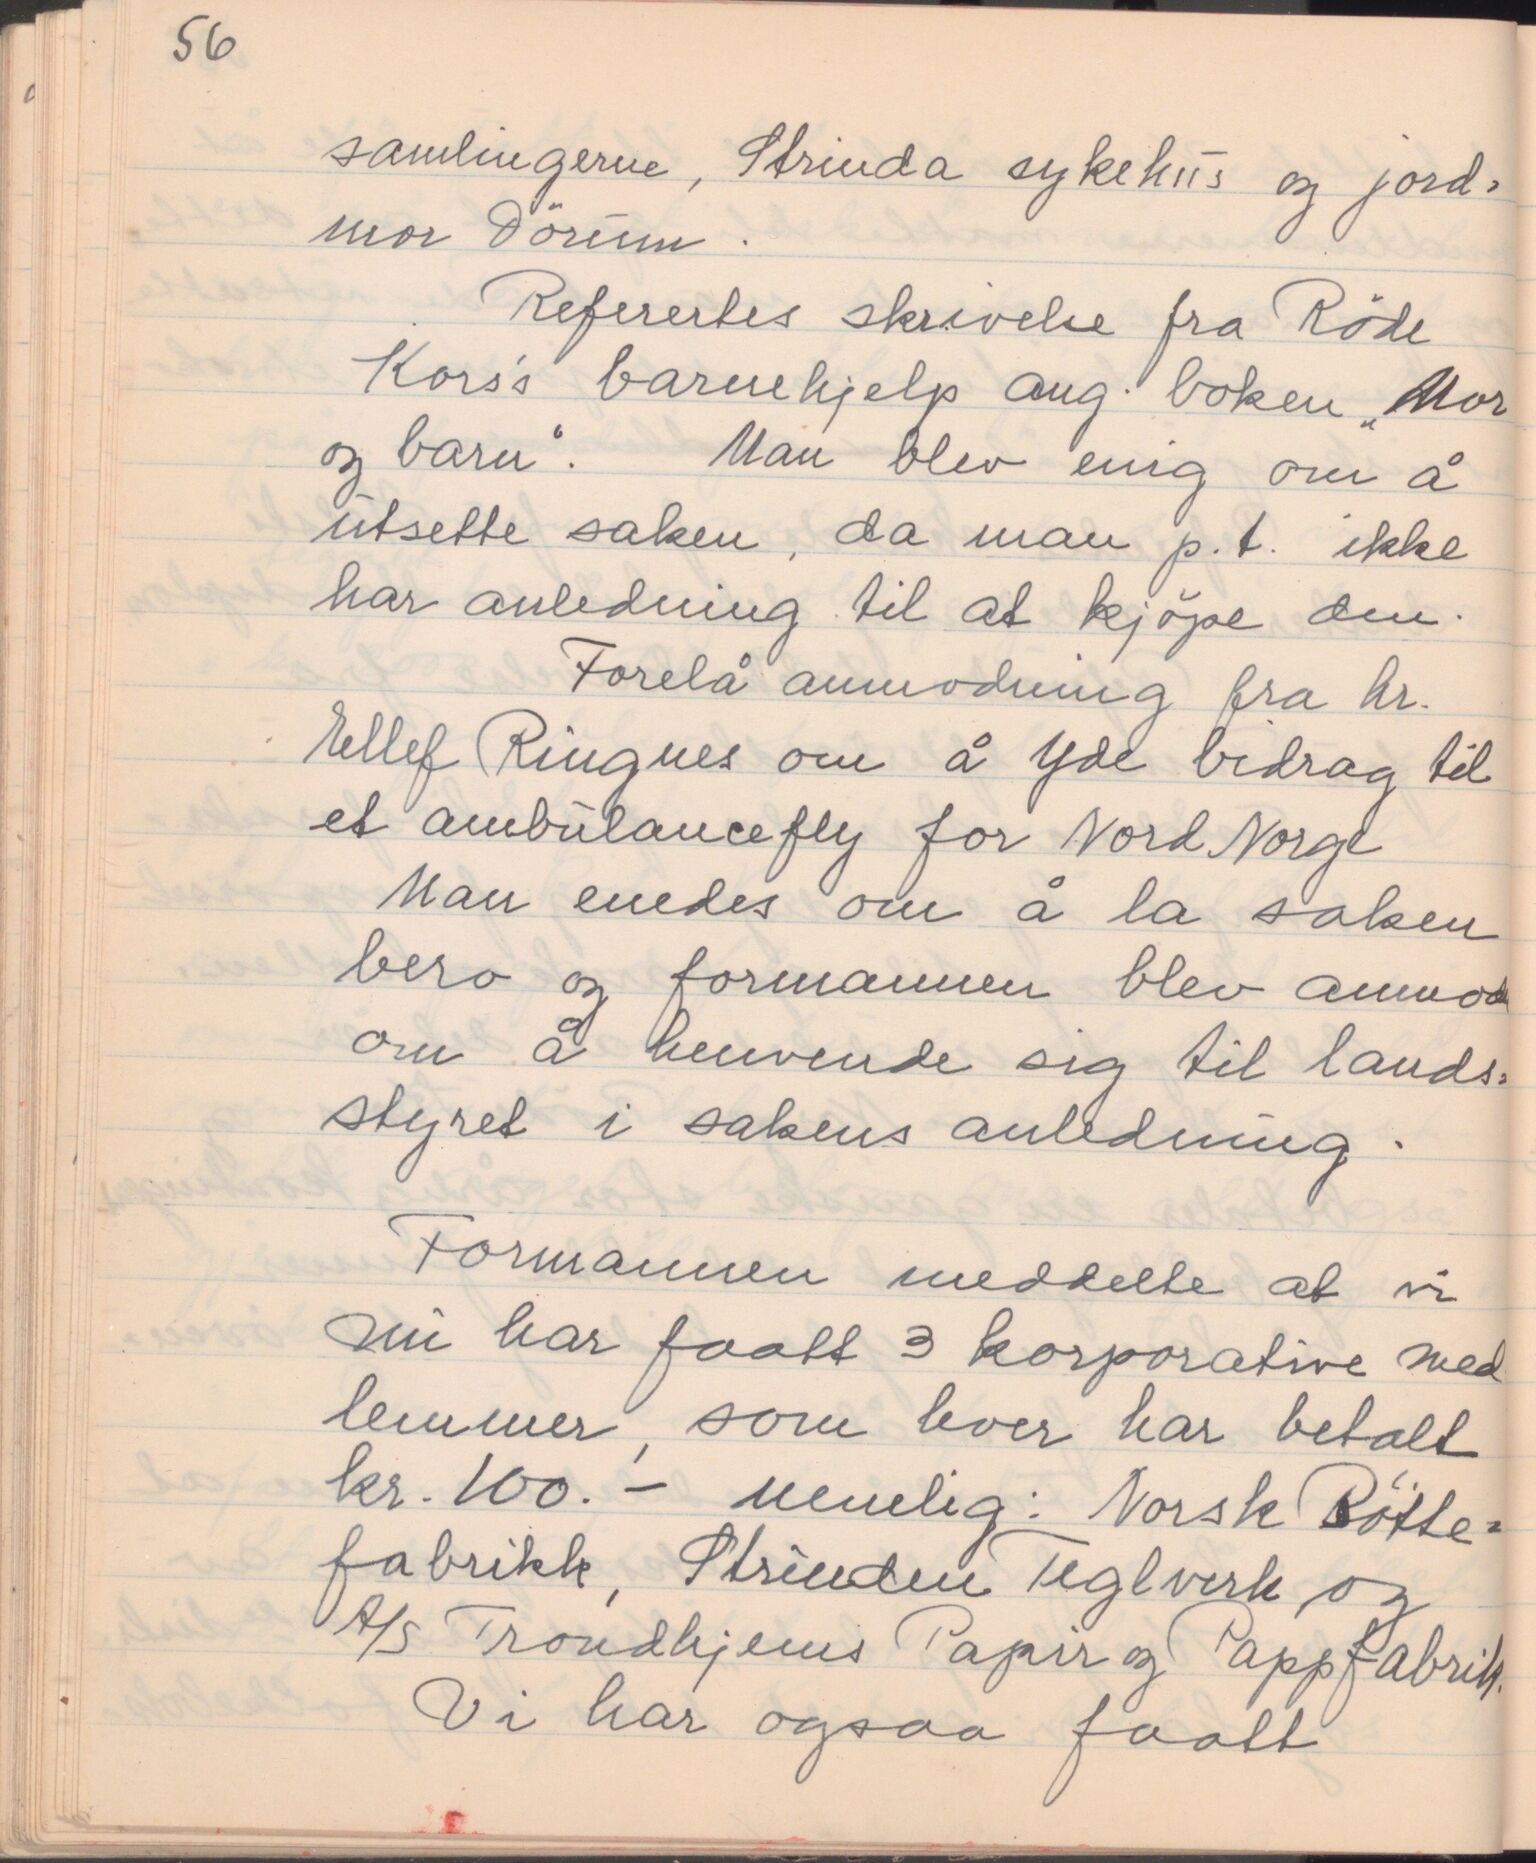 56
samlingerne, Strinda sykehus og jord-
mor Dörum.
Referertes skrivelse fra Röde
Kors's barnehjelp ang. boken „Mor
og barn“. Man blev enig om å
utsette saken, da man p.t. ikke
har anledning til at kjöpe den.
Forelå anmodning fra hr.
Ellef Ringnes om å yde bidrag til
et ambulancefly for Nord Norge
Man enedes om å la saken
bero og formannen blev anmodet
om å henvende sig til lands-
styret i sakens anledning.
Formannen meddelte at vi
nu har faatt 3 korporative med
lemmer, som hver har betalt
kr. 100.- nemlig: Norsk Bötte-
fabrikk, Strinden Teglverk og
A/S Trondhjems Papir og Pappfabrik.
Vi har ogsaa faatt